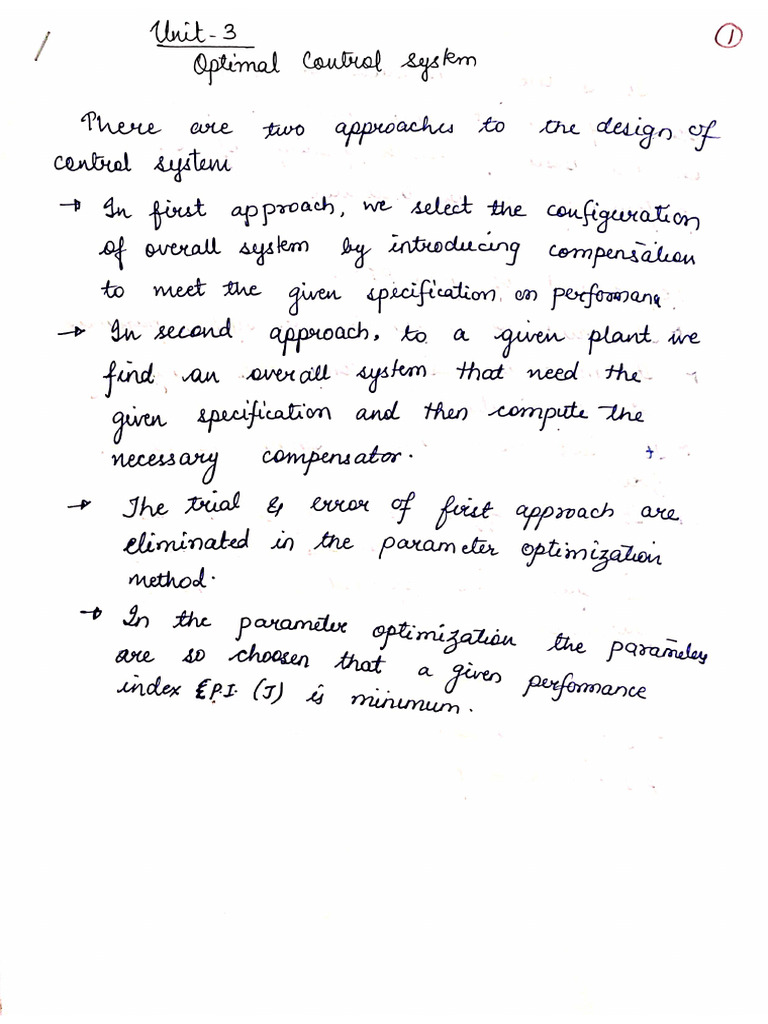 Unit-3
1
Optimal Control System
There are two approaches to the design of
control system
→ In first approach, we select the configuration
of overall system by introducing compensation
to meet the given specification on performance
→ In second approach, to a given plant we
find an overall system that need the
given specification and then compute the
necessary compensator.
→ The trial & error of first approach are
eliminated in the parameter optimization
method.
→ In the parameter optimization the parameters
are so choosen that a given performance
index {P.I. (J) is minimum.